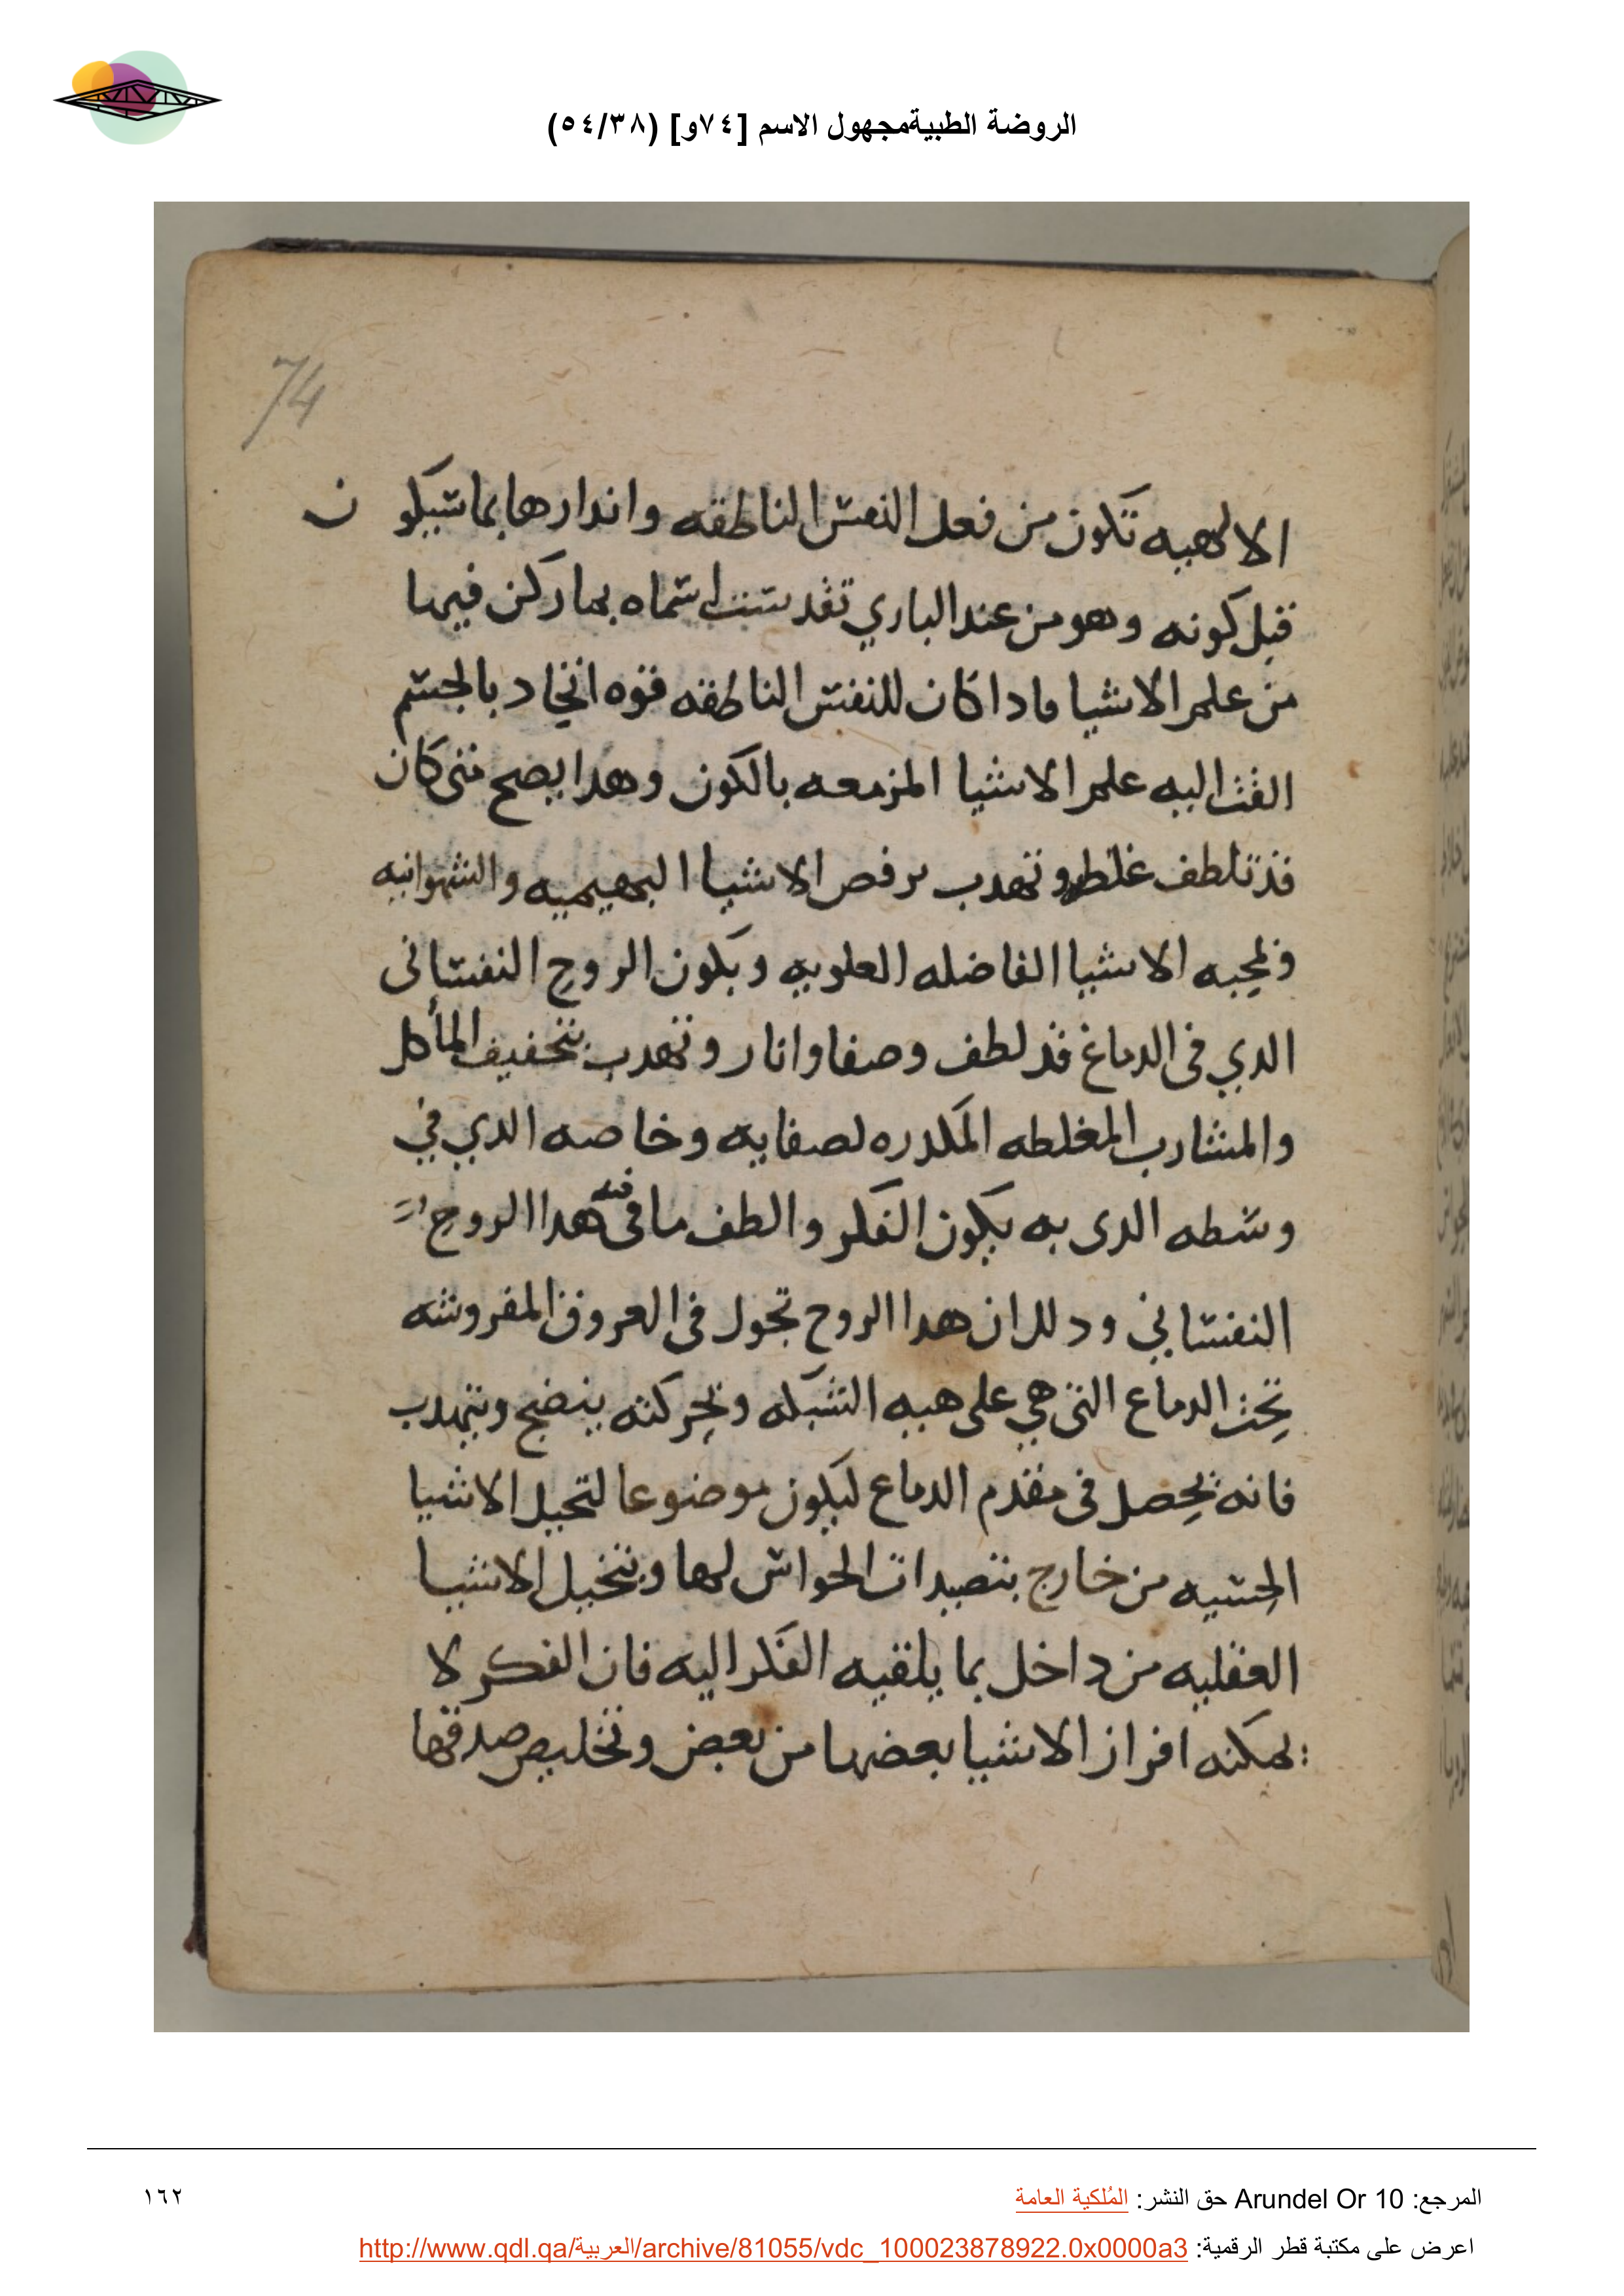 الروضة الطبيةمجهول الاسم [٧٤و] (٥٤/٣٨)
74
الالهيه تكون من فعل النفس الناطقه واندارها بما سيكون
قبل كونه وهو من عند الباري تقدست اسماه بما ركن فيها
من علم الاشيا فادا كان للنفس الناطقه قوه اتحاد بالجسم
القت اليه علم الاشيا المزمعه بالكون وهدا يصح متى كان
قد تلطف غلظه وتهدب برفض الاشيا البهيميه والشهوانيه
ومحبه الاشيا الفاضله العلويه ويكون الروح النفساني
الدي في الدماغ قد لطف وصفا وانار وتهدب بتخفيف المأكل
والمشارب المغلطه المكدره لصفايه وخاصه الدي في
وسطه الدى به يكون الفكر والطف ما في فيه هدا الروح
النفساني ودلك ان هدا الروح تجول في العروق المفروشه
تحت الدماع التي هي على هيه الشبكه وتحركته ينضج ويتهدب
فانه يحصل في مقدم الدماع ليكون موضوعا لتخيل الاشيا
الحسيه من خارج بتصيدات الحواس لها وبتخيل الاشيا
العقليه من داخل بما يلقيه الفكر اليه فان الفكر لا
يمكنه افراز الاشيا بعضها من بعض وتخليص صدقها
المرجع: Arundel Or 10 حق النشر: المُلكية العامة
١٦٢
اعرض على مكتبة قطر الرقمية: http://www.qdl.qa/العربية/archive/81055/vdc_100023878922.0x0000a3